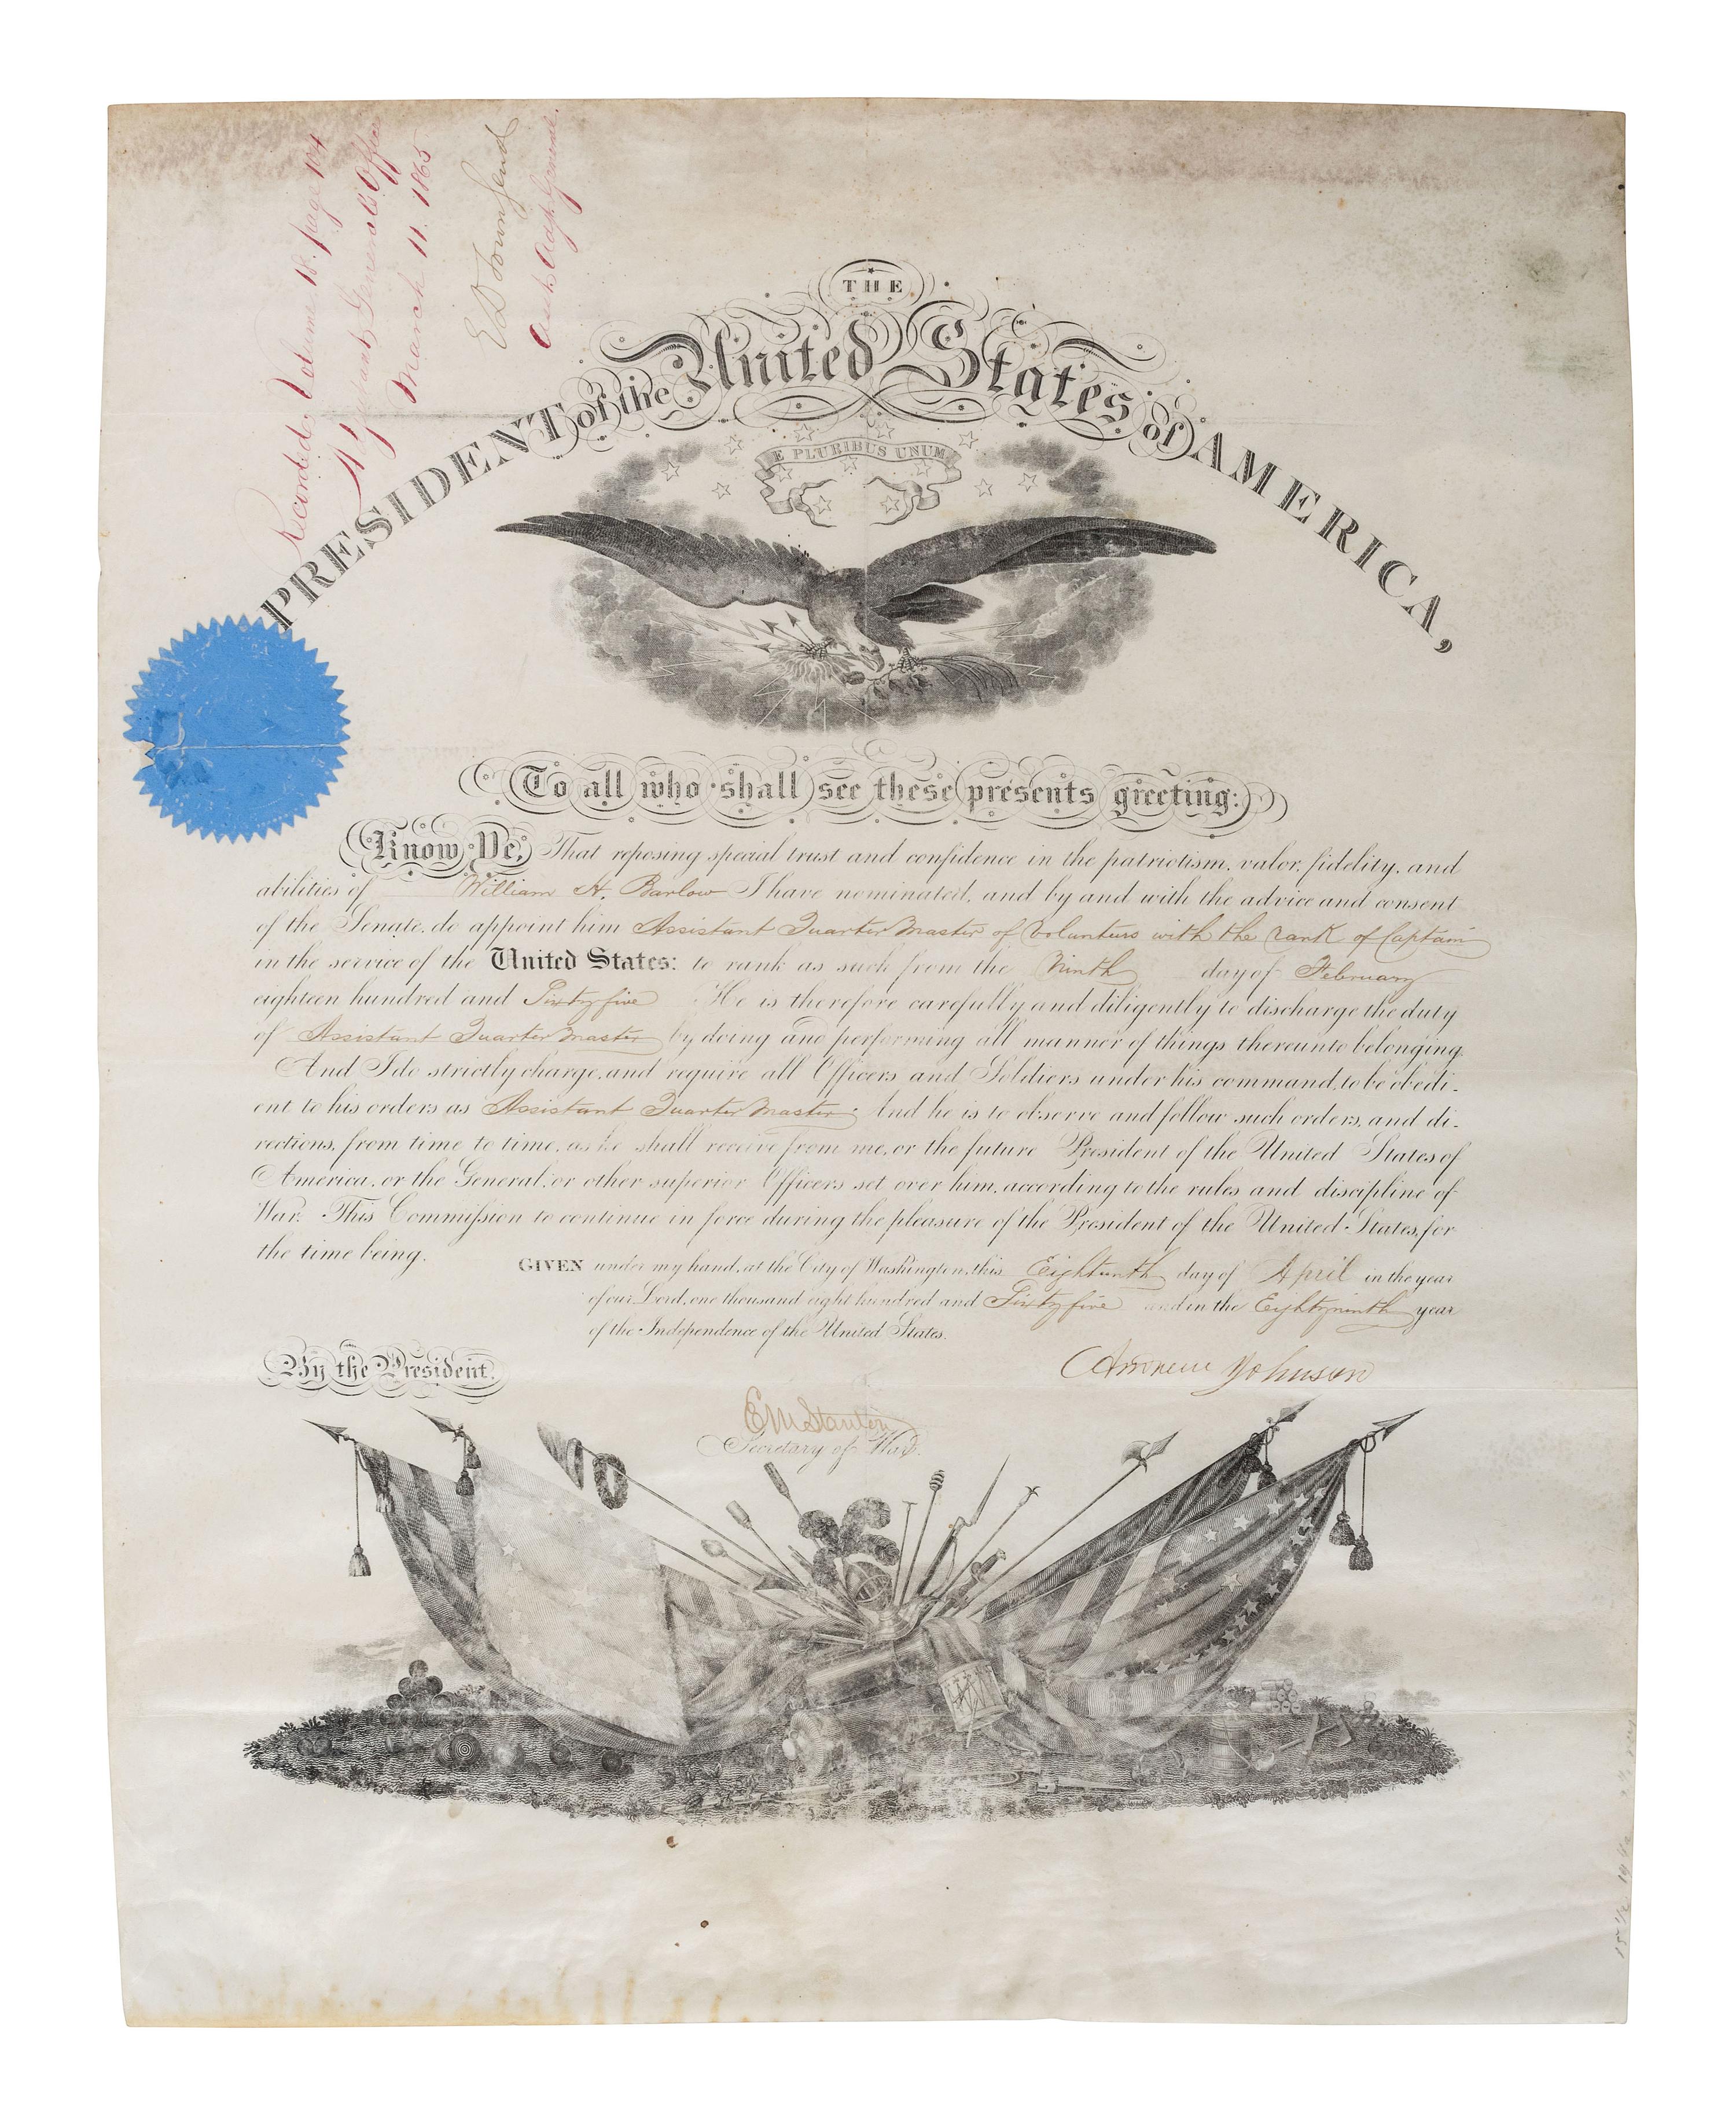 Recorded Volume 18. page 104
Adjutant General's Office
March 11. 1865
E D Townsend
Asst. Adjt. General.
THE
PRESIDENT of the United States of AMERICA,
E PLURIBUS UNUM
To all who shall see these presents greeting:
Know Ye, That reposing special trust and confidence in the patriotism, valor, fidelity, and
abilities of William H. Barlow I have nominated, and by and with the advice and consent
of the Senate, do appoint him Assistant Quarter Master of Volunteers with the rank of Captain
in the service of the United States: to rank as such from the Ninth day of February
eighteen hundred and Sixty five He is therefore carefully and diligently to discharge the duty
of Assistant Quarter Master by doing and performing all manner of things thereunto belonging.
And I do strictly charge, and require all Officers and Soldiers under his command, to be obedi-
ent to his orders as Assistant Quarter Master. And he is to observe and follow such orders, and di-
rections, from time to time, as he shall receive from me, or the future President of the United States of
America, or the General, or other superior Officers set over him, according to the rules and discipline of
War. This Commission to continue in force during the pleasure of the President of the United States, for
the time being.
GIVEN under my hand, at the City of Washington, this Eighteenth day of April in the year
of our Lord, one thousand eight hundred and Sixty five and in the Eighty ninth year
of the Independence of the United States.
By the President.
Andrew Johnson
E M Stanton
Secretary of War.